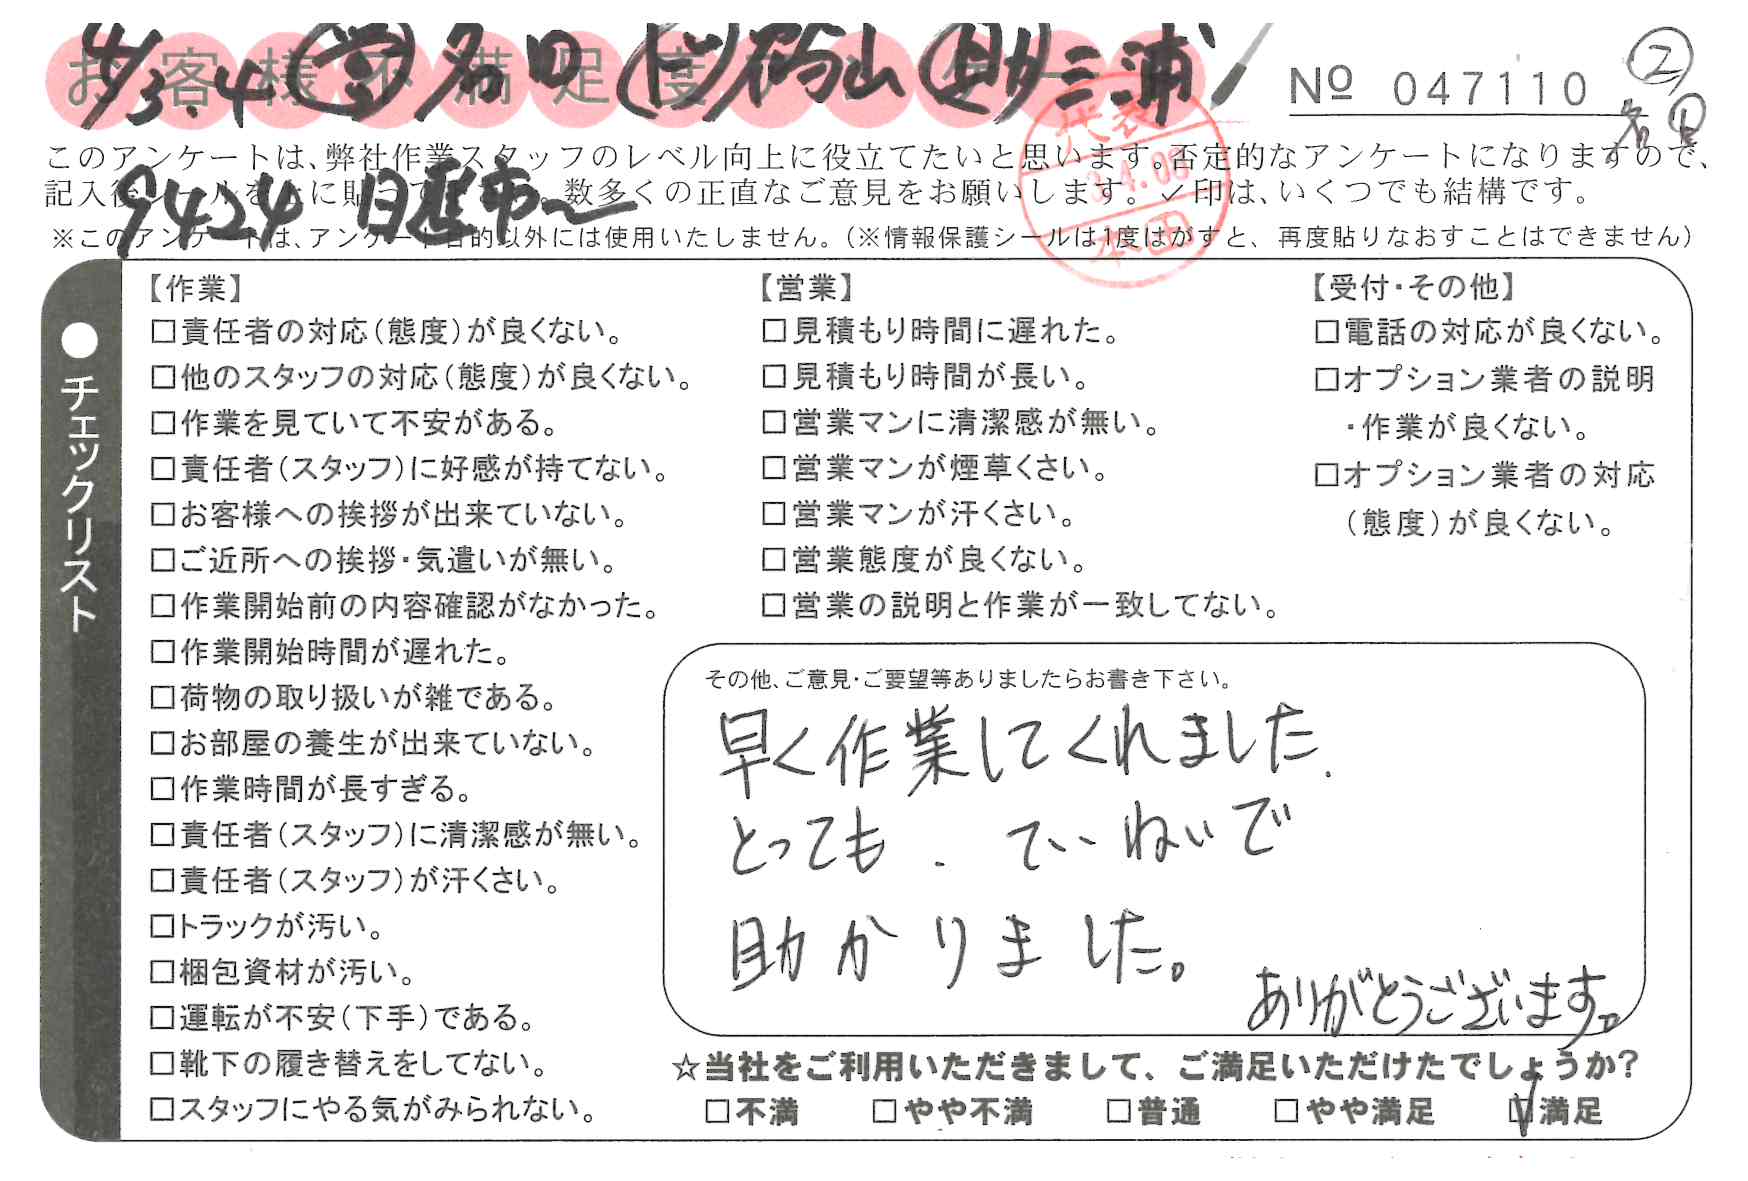 お客様不満足度アンケート
4/3.4 (営)名口 (ド)杉山 (助)三浦
№ 047110
②
このアンケートは、弊社作業スタッフのレベル向上に役立てたいと思います。否定的なアンケートになりますので、
記入後シールを上に貼って下さい。数多くの正直なご意見をお願いします。✓印は、いくつでも結構です。
9424
※このアンケートは、アンケート目的以外には使用いたしません。(※情報保護シールは1度はがすと、再度貼りなおすことはできません)
代表
3.4.06
本田
●チェックリスト
【作業】
□責任者の対応(態度)が良くない。
□他のスタッフの対応(態度)が良くない。
□作業を見ていて不安がある。
□責任者(スタッフ)に好感が持てない。
□お客様への挨拶が出来ていない。
□ご近所への挨拶・気遣いが無い。
□作業開始前の内容確認がなかった。
□作業開始時間が遅れた。
□荷物の取り扱いが雑である。
□お部屋の養生が出来ていない。
□作業時間が長すぎる。
□責任者(スタッフ)に清潔感が無い。
□責任者(スタッフ)が汗くさい。
□トラックが汚い。
□梱包資材が汚い。
□運転が不安(下手)である。
□靴下の履き替えをしてない。
□スタッフにやる気がみられない。
【営業】
□見積もり時間に遅れた。
□見積もり時間が長い。
□営業マンに清潔感が無い。
□営業マンが煙草くさい。
□営業マンが汗くさい。
□営業態度が良くない。
□営業の説明と作業が一致してない。
【受付・その他】
□電話の対応が良くない。
□オプション業者の説明
・作業が良くない。
□オプション業者の対応
(態度)が良くない。
その他、ご意見・ご要望等ありましたらお書き下さい。
早く作業してくれました.
とっても. ていねいで
助かりました。
ありがとうございます。
☆当社をご利用いただきまして、ご満足いただけたでしょうか?
□不満 □やや不満 □普通 □やや満足 ☑満足